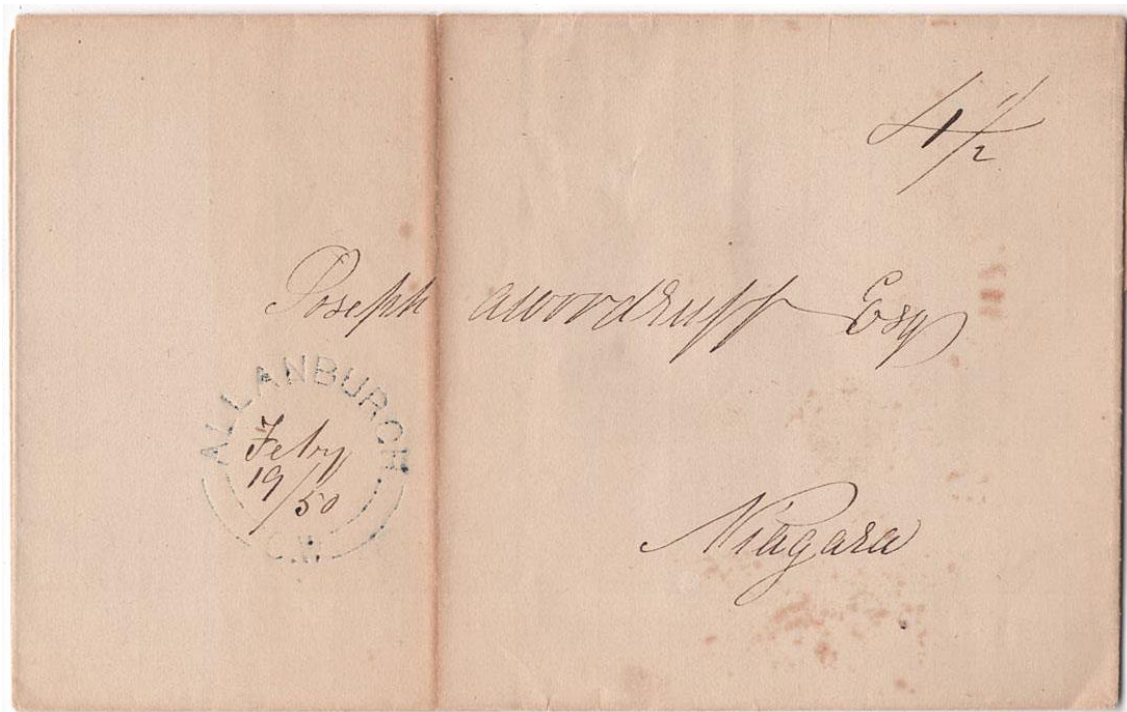 4 1/2
Joseph awoodruff Esq
ALLANBURGH
Feby
19/50
C.W.
Niagara